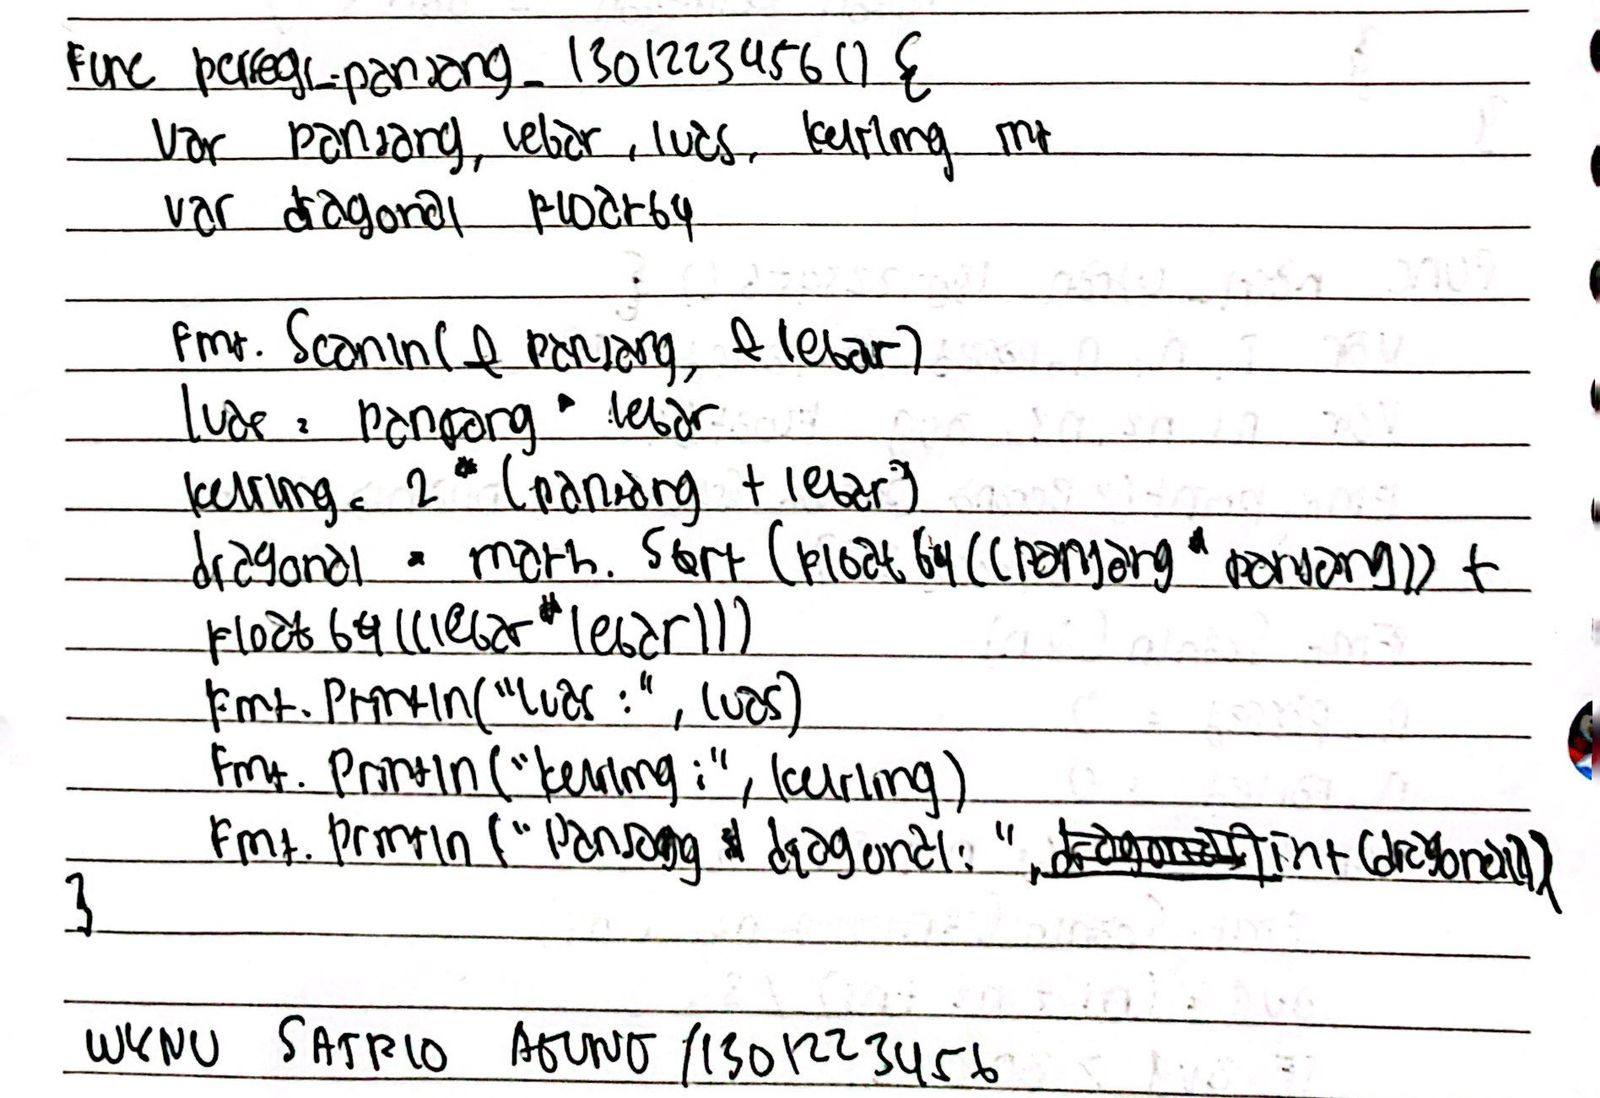 func persegi_panjang_1301223456() {
var panjang, lebar, luas, keliling int
var diagonal float64
fmt.Scanln(& panjang, & lebar)
luas = panjang * lebar
keliling = 2 * (panjang + lebar)
diagonal = math.Sqrt (float64((panjang * panjang)) +
float64(((lebar * lebar)))
fmt.Println("luas :", luas)
fmt.Println("keliling :", keliling)
fmt.Println ("Panjang diagonal: ", int(diagonal))
}
WISNU SATRIO AGUNG /1301223456